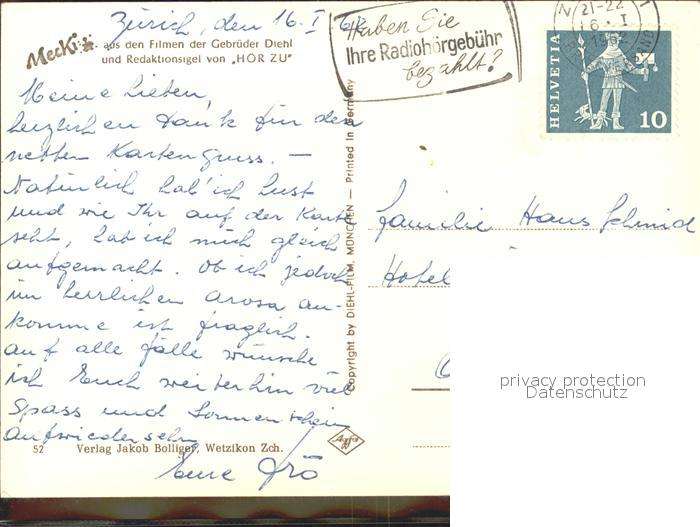 Zürich, den 16. I
Mecki aus den Filmen der Gebrüder Diehl
und Redaktionsigel von „HÖR ZU"
Meine Lieben,
herzlichen Dank für den
netten Kartengruss. –
Natürlich hab' ich Lust
und wie Ihr auf der Karte
seht, hab ich mich gleich
aufgemacht. Ob ich jedoch
im herrlichen Arosa an-
komme ist fraglich.
Auf alle Fälle wünsche
ich Euch weiterhin viel
Spass und Sonnenschein
Aufwiedersehn
Eure
52 Verlag Jakob Bolliger, Wetzikon Zch.
Agfa
Copyright by DIEHL-FILM, MÜNCHEN — Printed in Germany
Haben Sie
Ihre Radiohörgebühr
bezahlt?
21-22
HELVETIA
10
Familie Hans Schmid
Hotel
privacy protection
Datenschutz